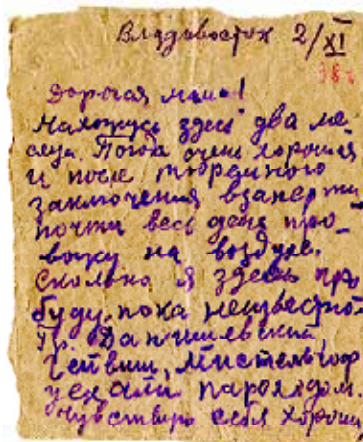 Владивосток 2/XI
38 г.
Дорогая мама!
Нахожусь здесь два ме-
сяца. Погода очень хорошая
и после тюремного
заключения взаперти
почти весь день про-
вожу на воздухе.
Сколько я здесь пр
буду, пока неизвестно.
Гр. Данишевский,
Гейвиш, Мистельгоф
уехали пароходом.
Чувствую себя хорошо